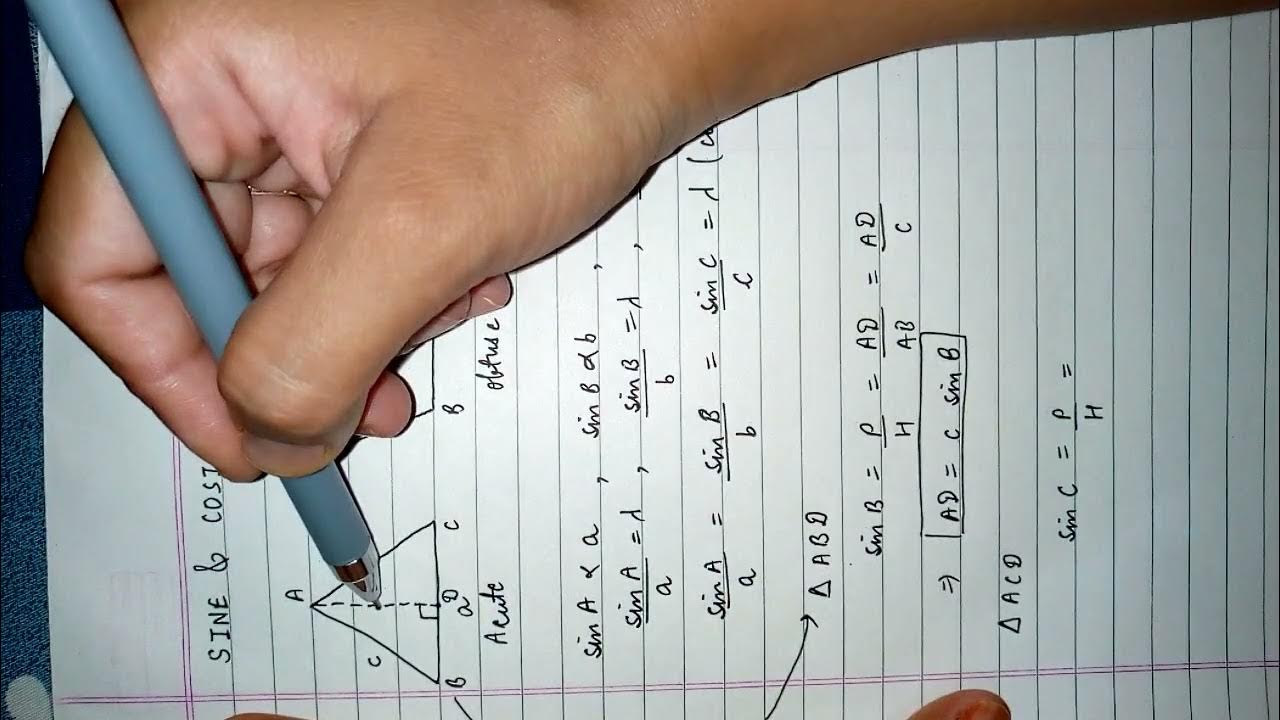 SINE & COSI
A
c
B D C B
a
Acute obtuse
sin A ∝ a , sin B ∝ b ,
sin A/a = λ , sin B/b = λ ,
sin A/a = sin B/b = sin C/c = λ (
Δ ABD
sin B = P/H = AD/AB = AD/c
⇒ AD = c sin B
Δ ACD
sin C = P/H =